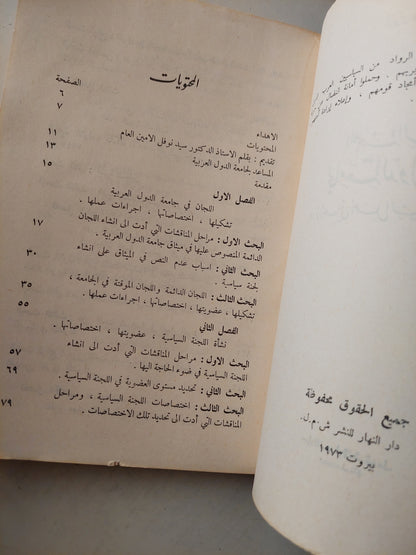 الرواد من السياسيين العرب
وحملوا أمانة
أمجاد قومهم ، وإعلاء
جميع الحقوق محفوظة
دار النهار للنشر ش.م.ل.
بيروت ١٩٧٣
المحتويات
الصفحة
الاهداء ٦
المحتويات ٧
تقديم : بقلم الاستاذ الدكتور سيد نوفل الامين العام ١١
المساعد لجامعة الدول العربية ١٣
مقدمة ١٥
الفصل الاول
اللجان في جامعة الدول العربية
تشكيلها ، اختصاصاتها ، اجراءات عملها .
البحث الاول : مراحل المناقشات التي أدت الى انشاء اللجان ١٧
الدائمة المنصوص عليها في ميثاق جامعة الدول العربية .
البحث الثاني : اسباب عدم النص في الميثاق على انشاء ٣٠
لجنة سياسية .
البحث الثالث : اللجان الدائمة واللجان الموقتة في الجامعة ، ٣٥
تشكيلها ، عضويتها ، اختصاصاتها ، اجراءات عملها .
الفصل الثاني ٥٥
نشأة اللجنة السياسية ، عضويتها ، اختصاصاتها .
البحث الاول : مراحل المناقشات التي أدت الى انشاء ٥٧
اللجنة السياسية في ضوء الحاجة اليها .
البحث الثاني : تحديد مستوى العضوية في اللجنة السياسية . ٦٩
البحث الثالث : اختصاصات اللجنة السياسية ، ومراحل ٧٩
المناقشات التي أدت الى تحديد تلك الاختصاصات .